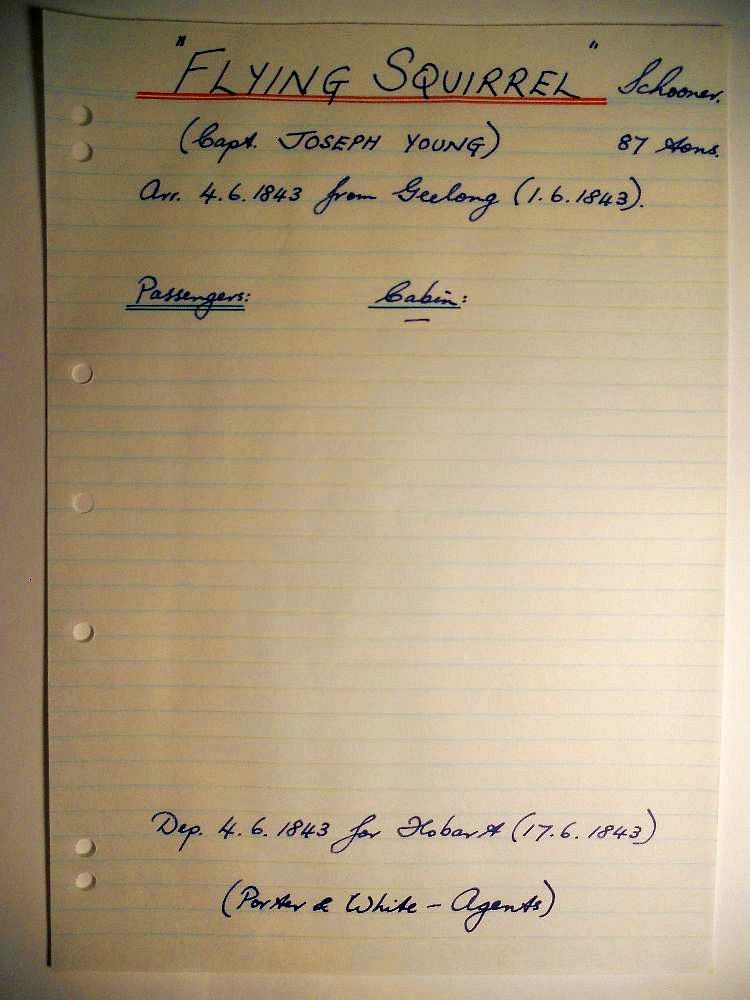 "FLYING SQUIRREL" Schooner.
(Capt. JOSEPH YOUNG) 87 tons.
Arr. 4.6.1843 from Geelong (1.6.1843).
Passengers: Cabin:
—
Dep. 4.6.1843 for Hobart (17.6.1843)
(Porter & White – Agents)